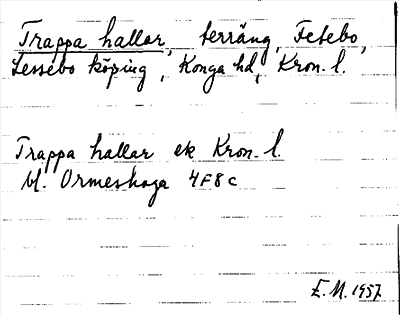 Trappa hallar, terräng, Fetebo,
Lessebo köping, Konga hd, Kron. l.
Trappa hallar ek Kron. l.
bl. Ormeshaga 4F8c
E.M. 1957.